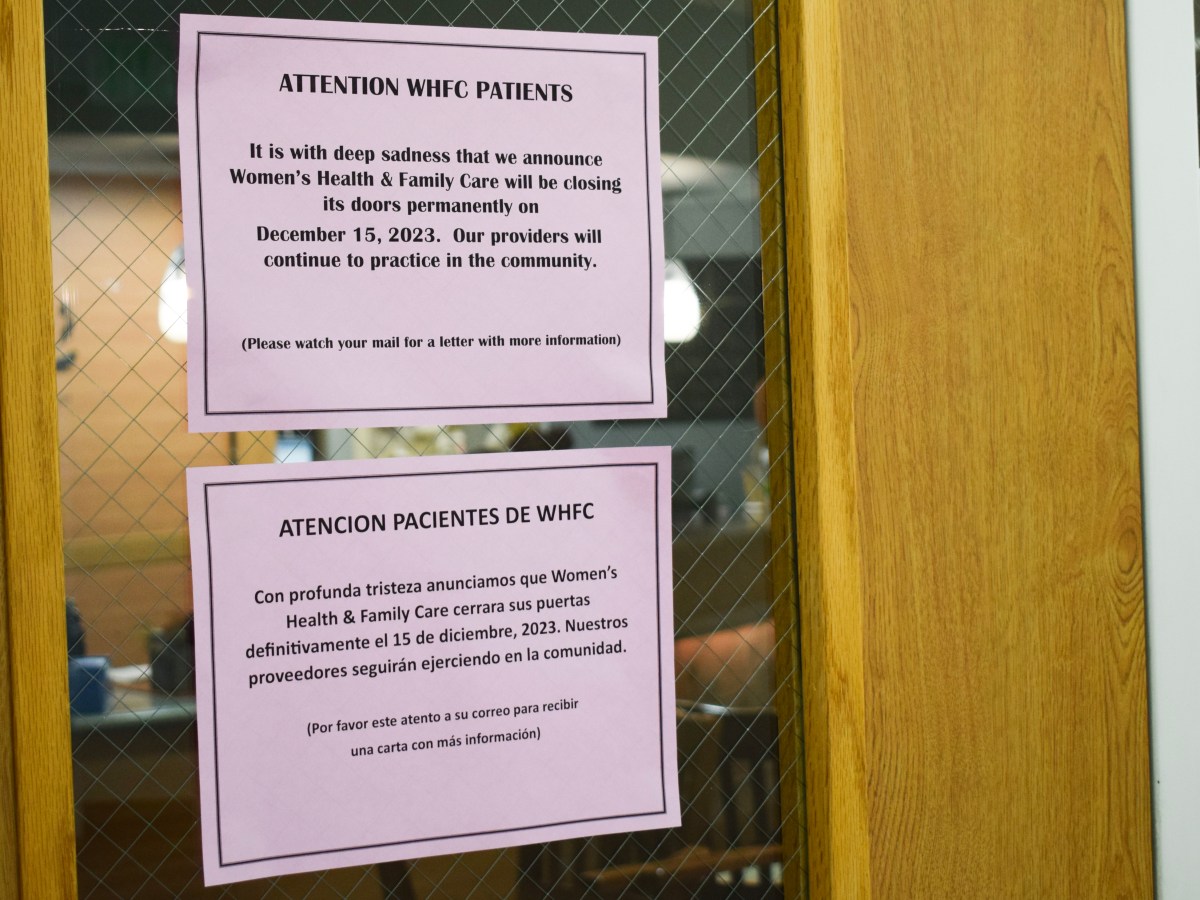 ATTENTION WHFC PATIENTS
It is with deep sadness that we announce
Women's Health & Family Care will be closing
its doors permanently on
December 15, 2023. Our providers will
continue to practice in the community.
(Please watch your mail for a letter with more information)
ATENCION PACIENTES DE WHFC
Con profunda tristeza anunciamos que Women's
Health & Family Care cerrara sus puertas
definitivamente el 15 de diciembre, 2023. Nuestros
proveedores seguirán ejerciendo en la comunidad.
(Por favor este atento a su correo para recibir
una carta con más información)